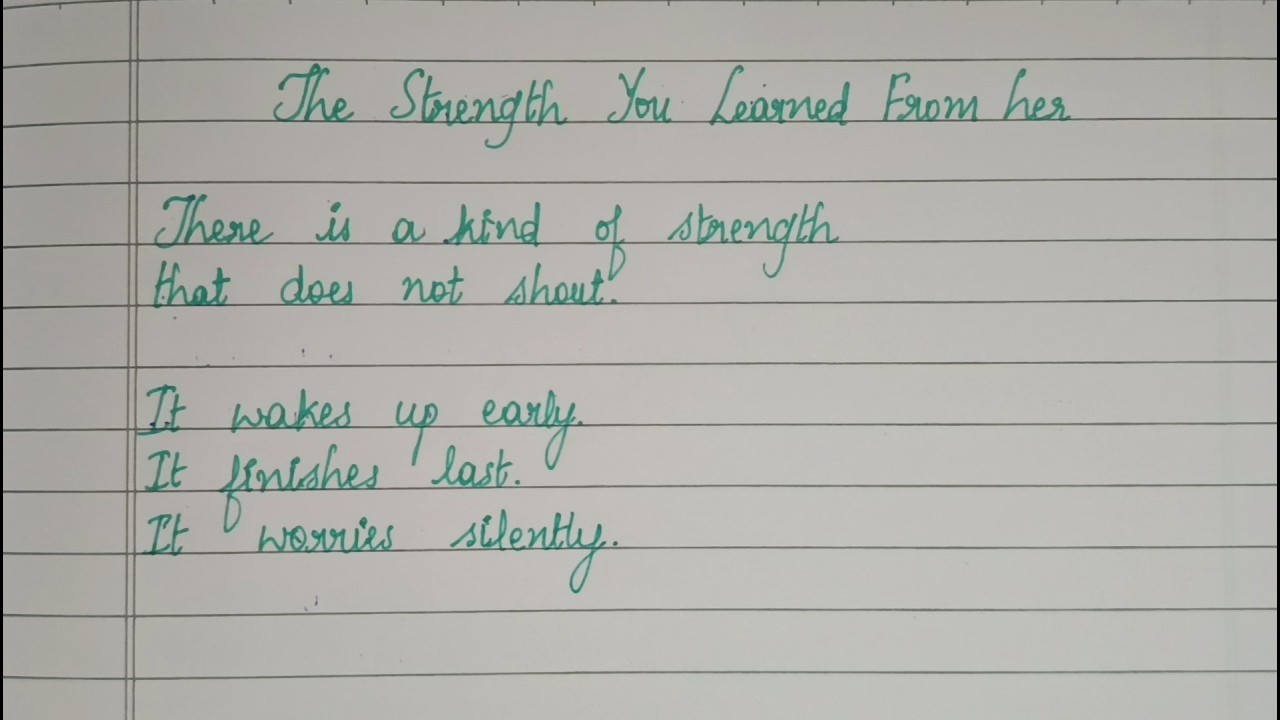 The Strength You Learned From her
There is a kind of strength
that does not shout.
It wakes up early.
It finishes last.
It worries silently.